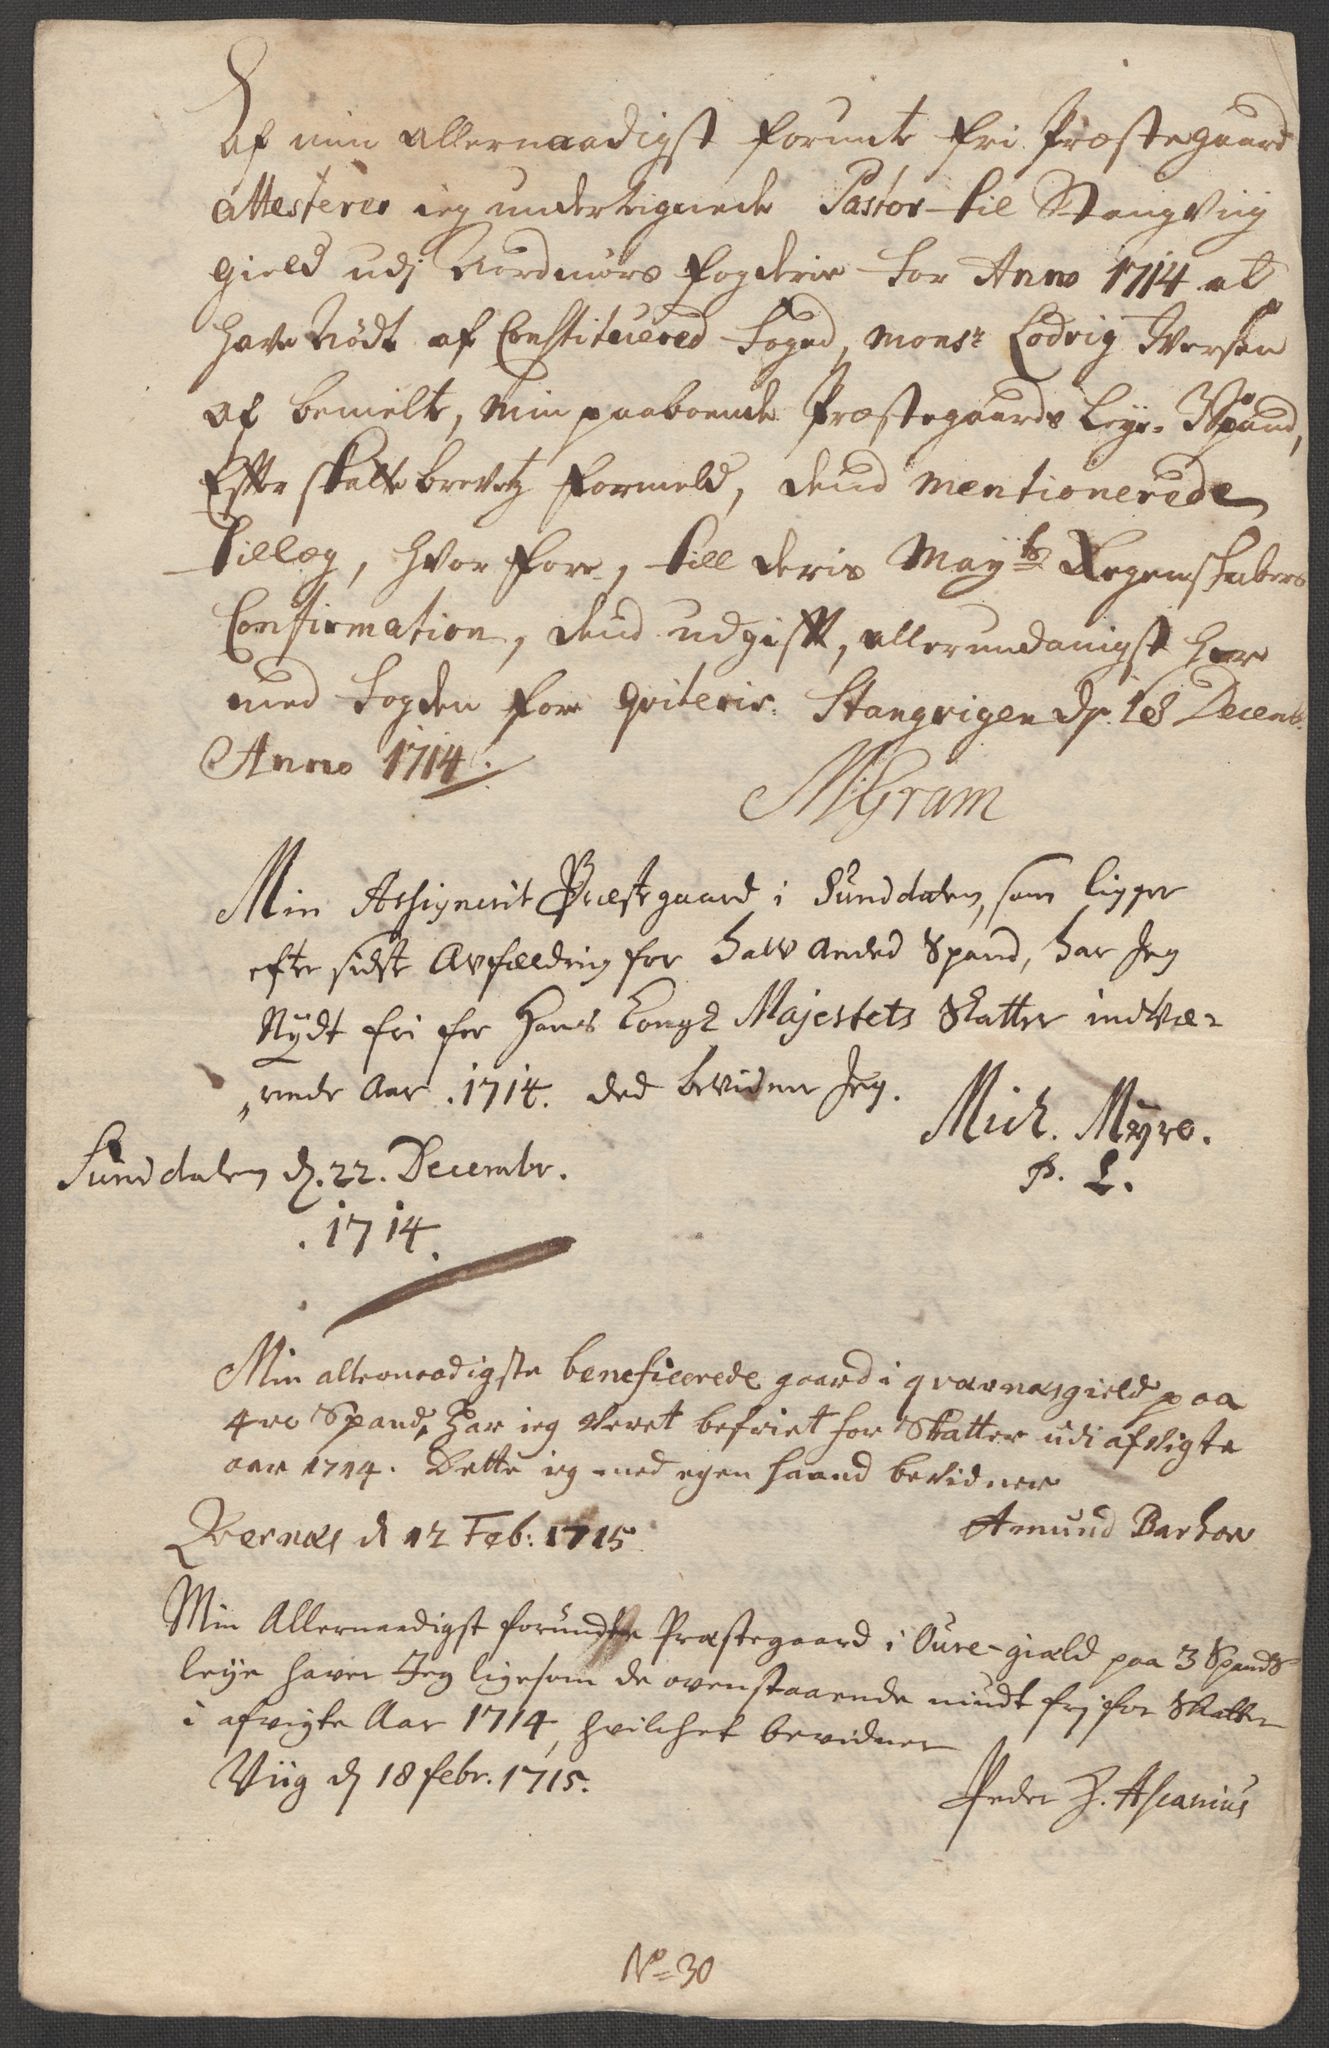 Af min allernaadigst forunte fri Præstegaard
attesteres ieg underteignede Pastor til Stangviig
gield udj Nordmørs fogderie for Anno 1714 at
have Nødt af Constituered foged, Monsr Lodvig Iversen
af bemelte, min paaboende Præstegaards Leye. 3 Spand,
Efter skatte brevetz formeld, dend mentionerede
tillæg, hvor fore, till deris Mayts Regenskabers
Confirmation, dend udgifft, allerundanigst her
med fogden for qviteris. Stangvigen d. 18 Decemb.
Anno 1714.
MGram
Min Assignerit Præstgaard i Sunddalen, som ligger
efter sidste Avfældning for halv anded Spand, har Jeg
Nydt fri for Hans Kongl Majestets Skatter indvæ-
rende Aar .1714. ded bevidner Jeg.
Mich. Myre.
P. L.
Sunddalen d. 22. Decembr.
.1714.
Min allernaadigste beneficerede gaard i qvernæsgield paa
4re Spand, har ieg veret befriet for Skatter udi afvigte
aar 1714. Dette ieg med egen haand bevidner
Qvernæs d 12 Feb: 1715
Amund Barhow
Min Allernaadigst forundte Præstegaard i Oure-giæld paa 3 Spands
leye haver Jeg ligesom de ovenstaaende niudt frj for Skatter
i afvigte Aar 1714, hvilchet bevidner
Viig d 18 febr. 1715.
Peder H. Ascanius
No 30